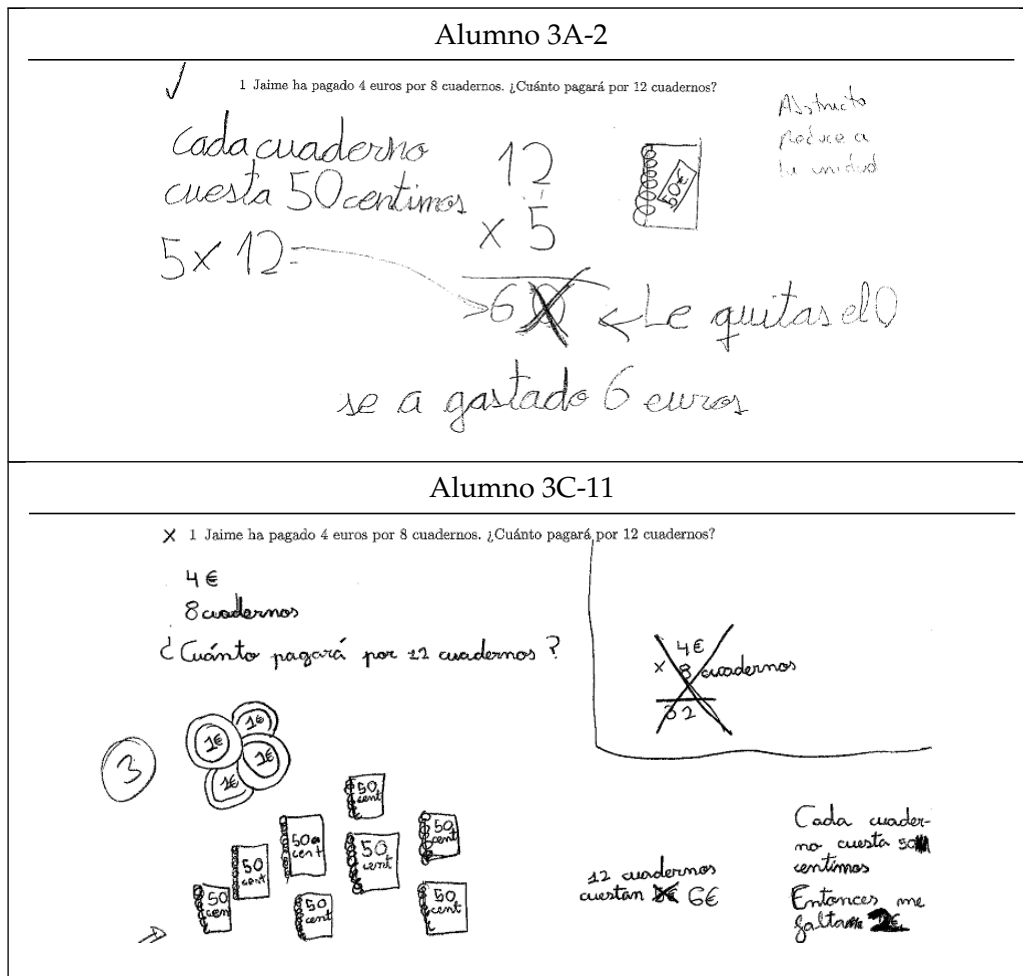 Alumno 3A-2
1 Jaime ha pagado 4 euros por 8 cuadernos. ¿Cuánto pagará por 12 cuadernos?
Abstracto
Reduce a
la unidad
Cada cuaderno
cuesta 50 centimos
5 x 12=
12
x 5
60
50€
Le quitas el 0
se a gastado 6 euros
Alumno 3C-11
X 1 Jaime ha pagado 4 euros por 8 cuadernos. ¿Cuánto pagará por 12 cuadernos?
4 €
8 cuadernos
¿Cuánto pagará por 12 cuadernos?
4 €
x 8 cuadernos
32
3
1€
1€
1€
1€
50 cent
50 cent
50 cent
50 cent
50 cent
50 cent
50 cent
50 cent
12 cuadernos
cuestan 6€
Cada cuader-
no cuesta 50
centimos
Entonces me
faltan 2€